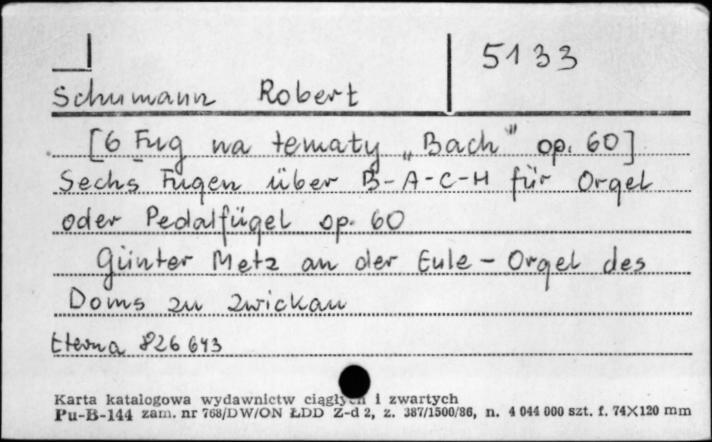 5133
Schumann Robert
[6 Fug na tematy „Bach" op. 60]
Sechs Fugen über B-A-C-H für Orgel
oder Pedalfügel op. 60
Günter Metz an der Eule - Orgel des
Doms zu Zwickau
Eterna 826 643
Karta katalogowa wydawnictw ciągłych i zwartych
Pu-B-144 zam. nr 768/DW/ON ŁDD Z-d 2, z. 387/1500/86, n. 4 044 000 szt. f. 74X120 mm